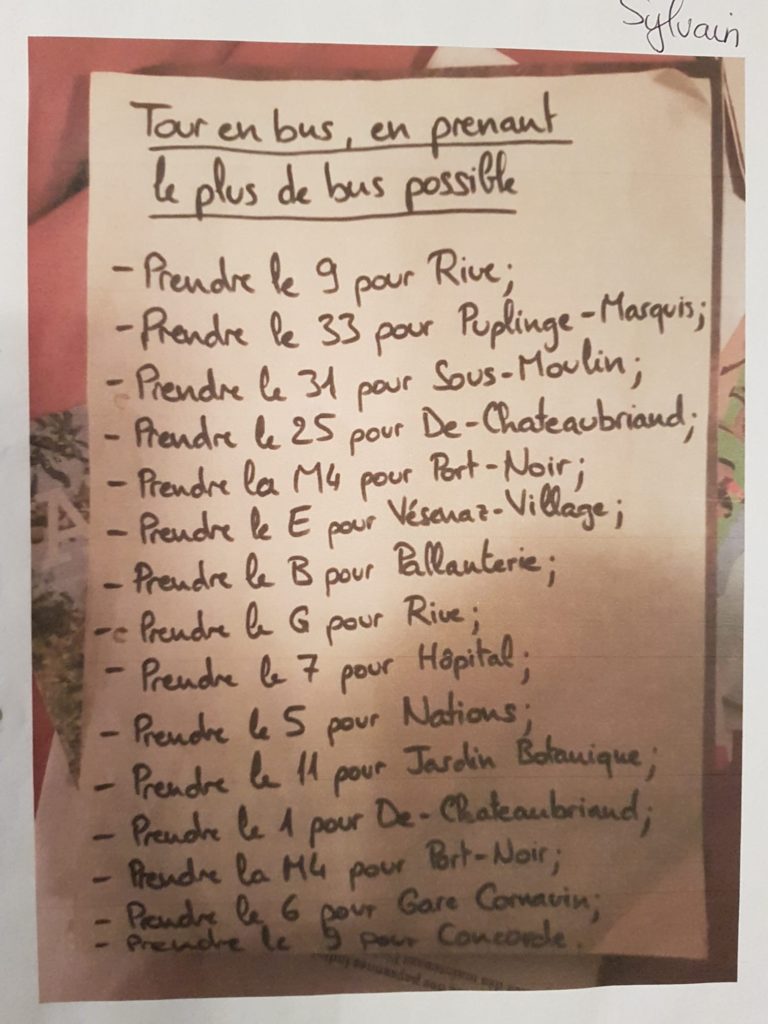 Sylvain
Tour en bus, en prenant
le plus de bus possible
- Prendre le 9 pour Rive;
- Prendre le 33 pour Puplinge-Marquis;
- Prendre le 31 pour Sous-Moulin;
- Prendre le 25 pour De-Chateaubriand;
- Prendre la M4 pour Port-Noir;
- Prendre le E pour Vésenaz-Village;
- Prendre le B pour Pallanterie;
- Prendre le G pour Rive;
- Prendre le 7 pour Hôpital;
- Prendre le 5 pour Nations;
- Prendre le 11 pour Jardin Botanique;
- Prendre le 1 pour De-Chateaubriand;
- Prendre la M4 pour Port-Noir;
- Prendre le 6 pour Gare Cornavin;
- Prendre le 9 pour Concorde.